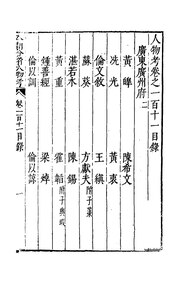 人物考卷之一百十一目錄
廣東廣州府二
黃皞 陳希文
冼光 黃衷
倫文敘 王縝
蘇葵 方獻夫 附子
湛若水 陳錫
黃重 霍韜 附子與瑕
鍾善經 梁焯
倫以訓 倫以諒
分省人物考 卷一百十一目錄